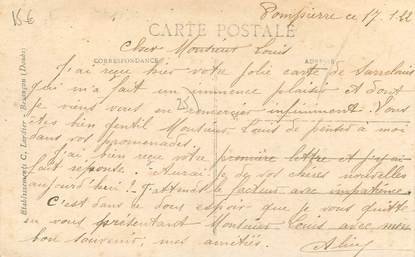 15€
Pompierre ce 17.1.22
CARTE POSTALE
CORRESPONDANCE
ADRESSE
Cher Monsieur Louis
J'ai reçu hier votre jolie carte de
qui m'a fait un immence plaisir et dont
je viens vous en remercier infiniment. Vous
êtes bien gentil Monsieur Louis de penser à moi
dans vos promenades.
J'ai bien reçu votre première lettre et j'y ai
fait réponse. Aurai-je de vos chères nouvelles
aujourd'hui? J'attends le facteur avec impatience.
C'est dans le doux espoir que je vous quitte
en vous présentant Monsieur Louis avec mon
bon souvenir, mes amitiés.
25
Etablissements C. Lardier - Besançon (Doubs)